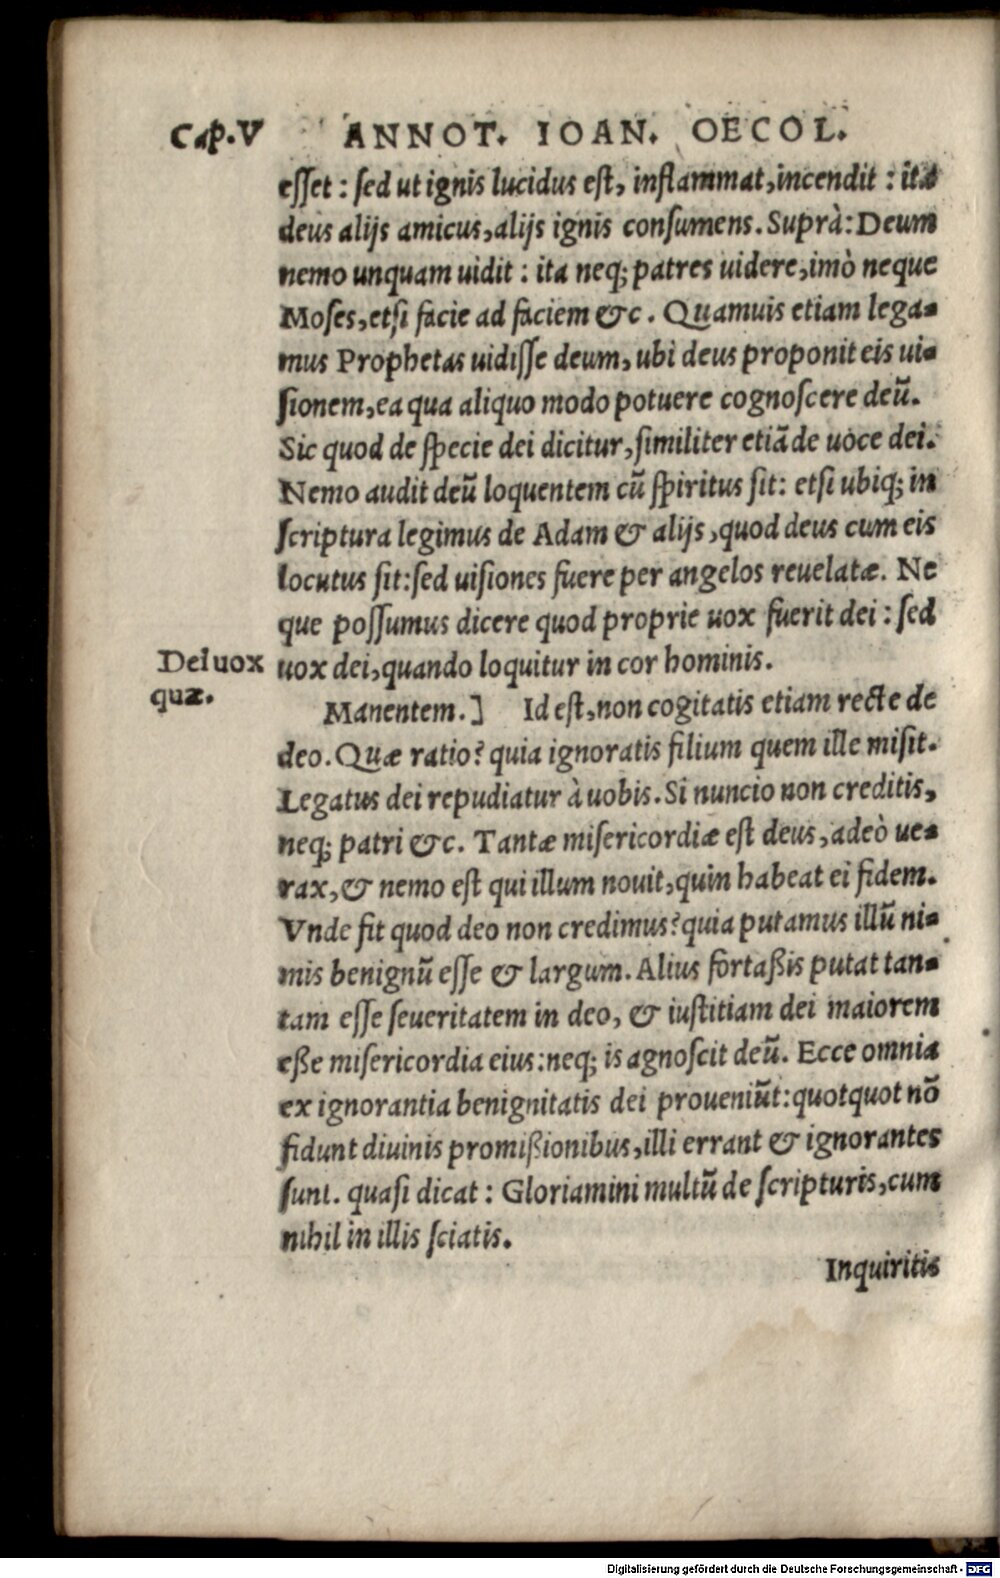 Cap.V ANNOT. IOAN. OECOL.
eſſet : ſed ut ignis lucidus eſt, inflammat, incendit : ita
deus alijs amicus, alijs ignis conſumens. Suprà: Deum
nemo unquam uidit : ita neq; patres uidere, imò neque
Moſes, etſi facie ad faciem &c. Quamuis etiam lega-
mus Prophetas uidiſſe deum, ubi deus proponit eis ui-
ſionem, ea qua aliquo modo potuere cognoſcere deū.
Sic quod de ſpecie dei dicitur, ſimiliter etiā de uoce dei.
Nemo audit deū loquentem cū ſpiritus ſit: etſi ubiq; in
ſcriptura legimus de Adam & alijs, quod deus cum eis
locutus ſit: ſed uiſiones fuere per angelos reuelatæ. Ne
que poſſumus dicere quod proprie uox fuerit dei : ſed
Dei uox
quæ.
uox dei, quando loquitur in cor hominis.
Manentem.] Id eſt, non cogitatis etiam recte de
deo. Quæ ratio? quia ignoratis filium quem ille miſit.
Legatus dei repudiatur à uobis. Si nuncio non creditis,
neq; patri &c. Tantæ miſericordiæ eſt deus, adeò ue-
rax, & nemo eſt qui illum nouit, quin habeat ei fidem.
Vnde fit quod deo non credimus? quia putamus illū ni-
mis benignū eſſe & largum. Alius fortaßis putat tan-
tam eſſe ſeueritatem in deo, & iuſtitiam dei maiorem
eße miſericordia eius: neq; is agnoſcit deū. Ecce omnia
ex ignorantia benignitatis dei proueniūt: quotquot nō
fidunt diuinis promißionibus, illi errant & ignorantes
ſunt. quaſi dicat : Gloriamini multū de ſcripturis, cum
nihil in illis ſciatis.
Inquiritis
Digitalisierung gefördert durch die Deutsche Forschungsgemeinschaft - DFG